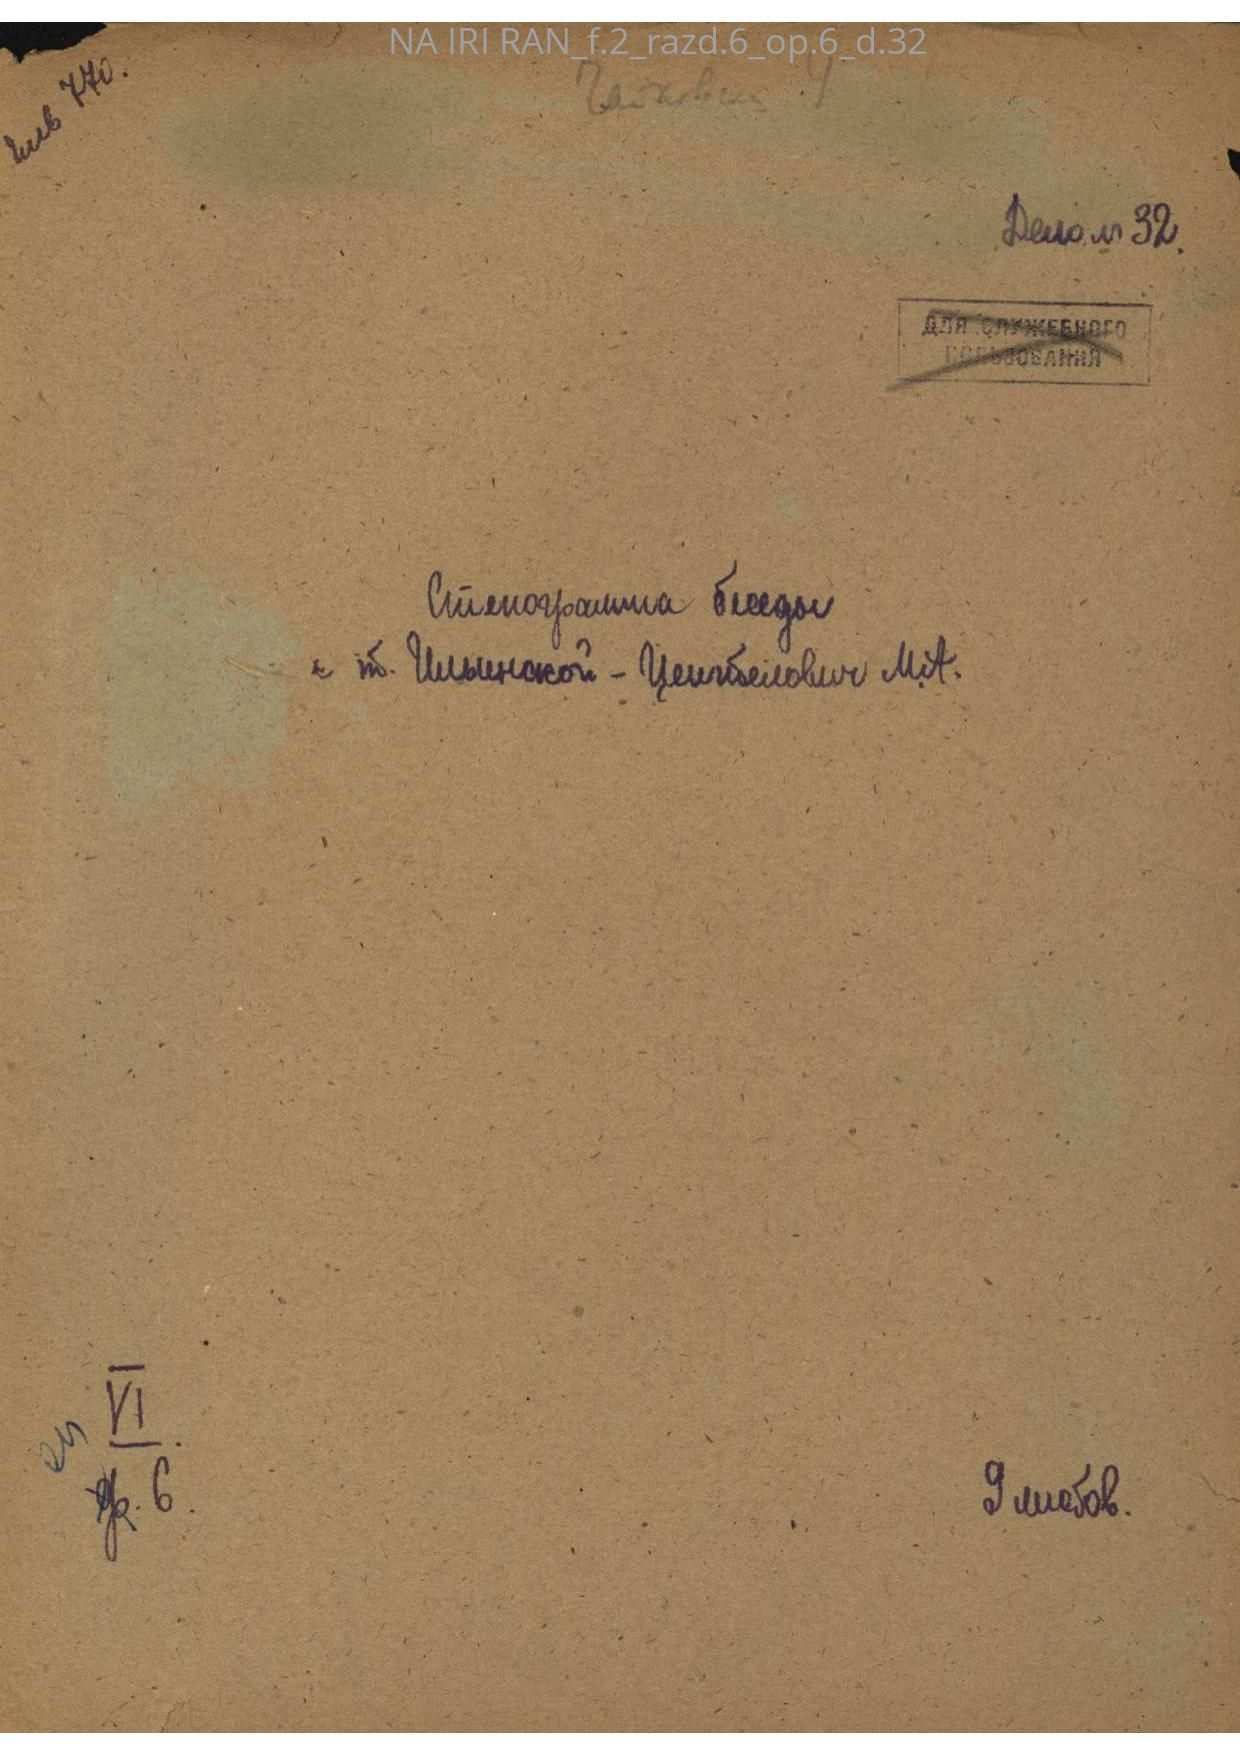 NA IRI RAN_f.2_razd.6_op.6_d.32
Инв 770.
Дело № 32.
ДЛЯ СЛУЖЕБНОГО
ПОЛЬЗОВАНИЯ
Стенограмма беседы
с т. Ильинской - Центелович М.А.
VI
6.
9 листов.